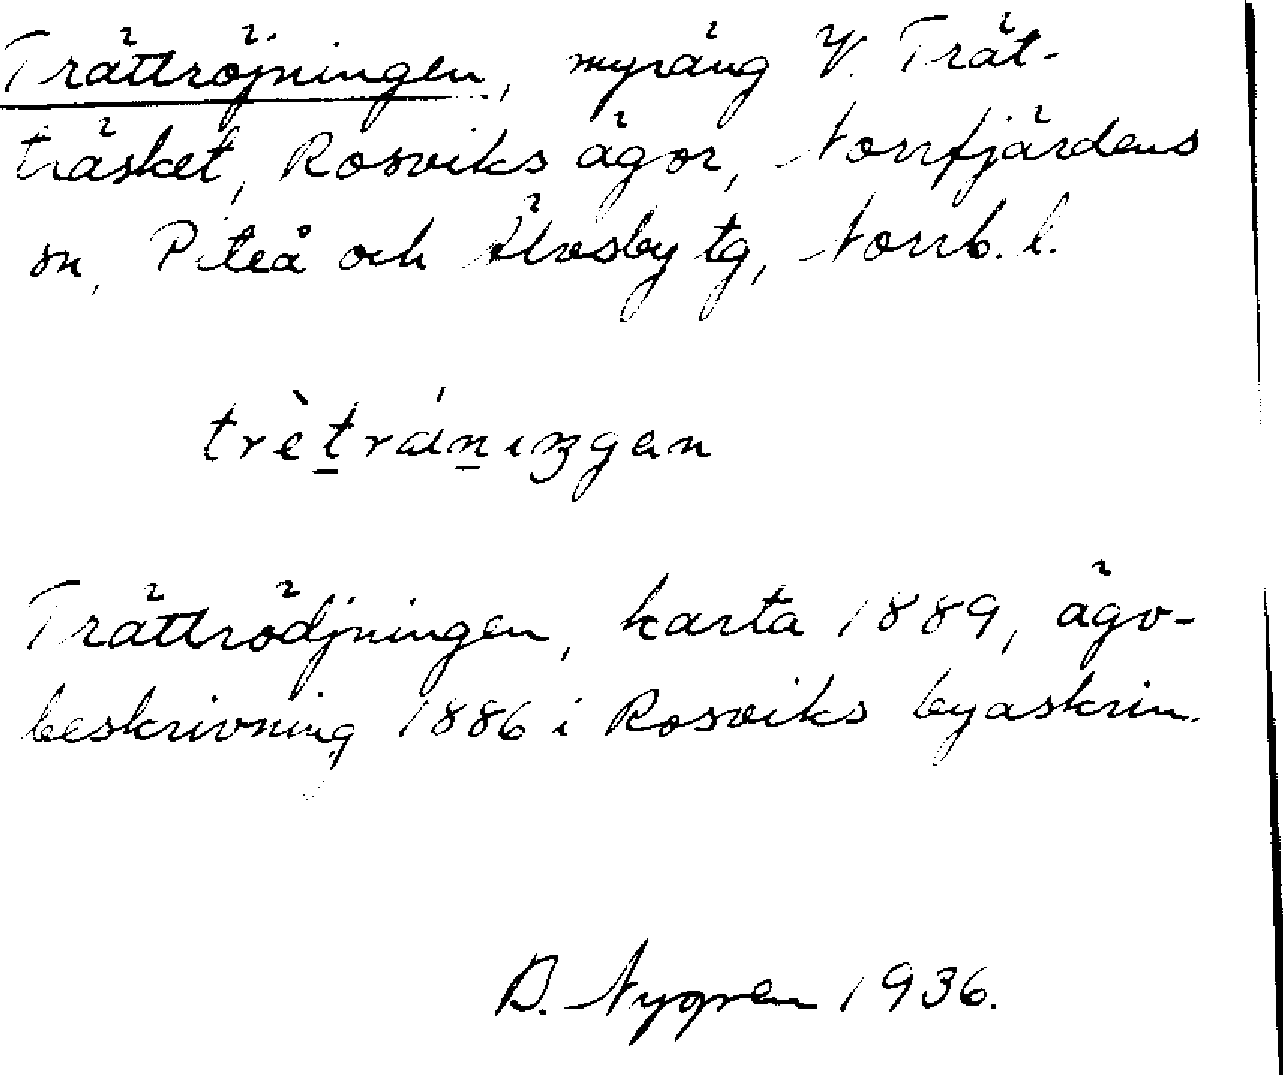 Trättröjningen, myräng V. Trät-
träsket, Rosviks ägor, Norrfjärdens
sn, Piteå och Älvsby tg, Norrb. l.
trètráiningen
Trättrödjningen, karta 1889, ägo-
beskrivning 1886 i Rosviks byaskrin.
B. Nygren 1936.